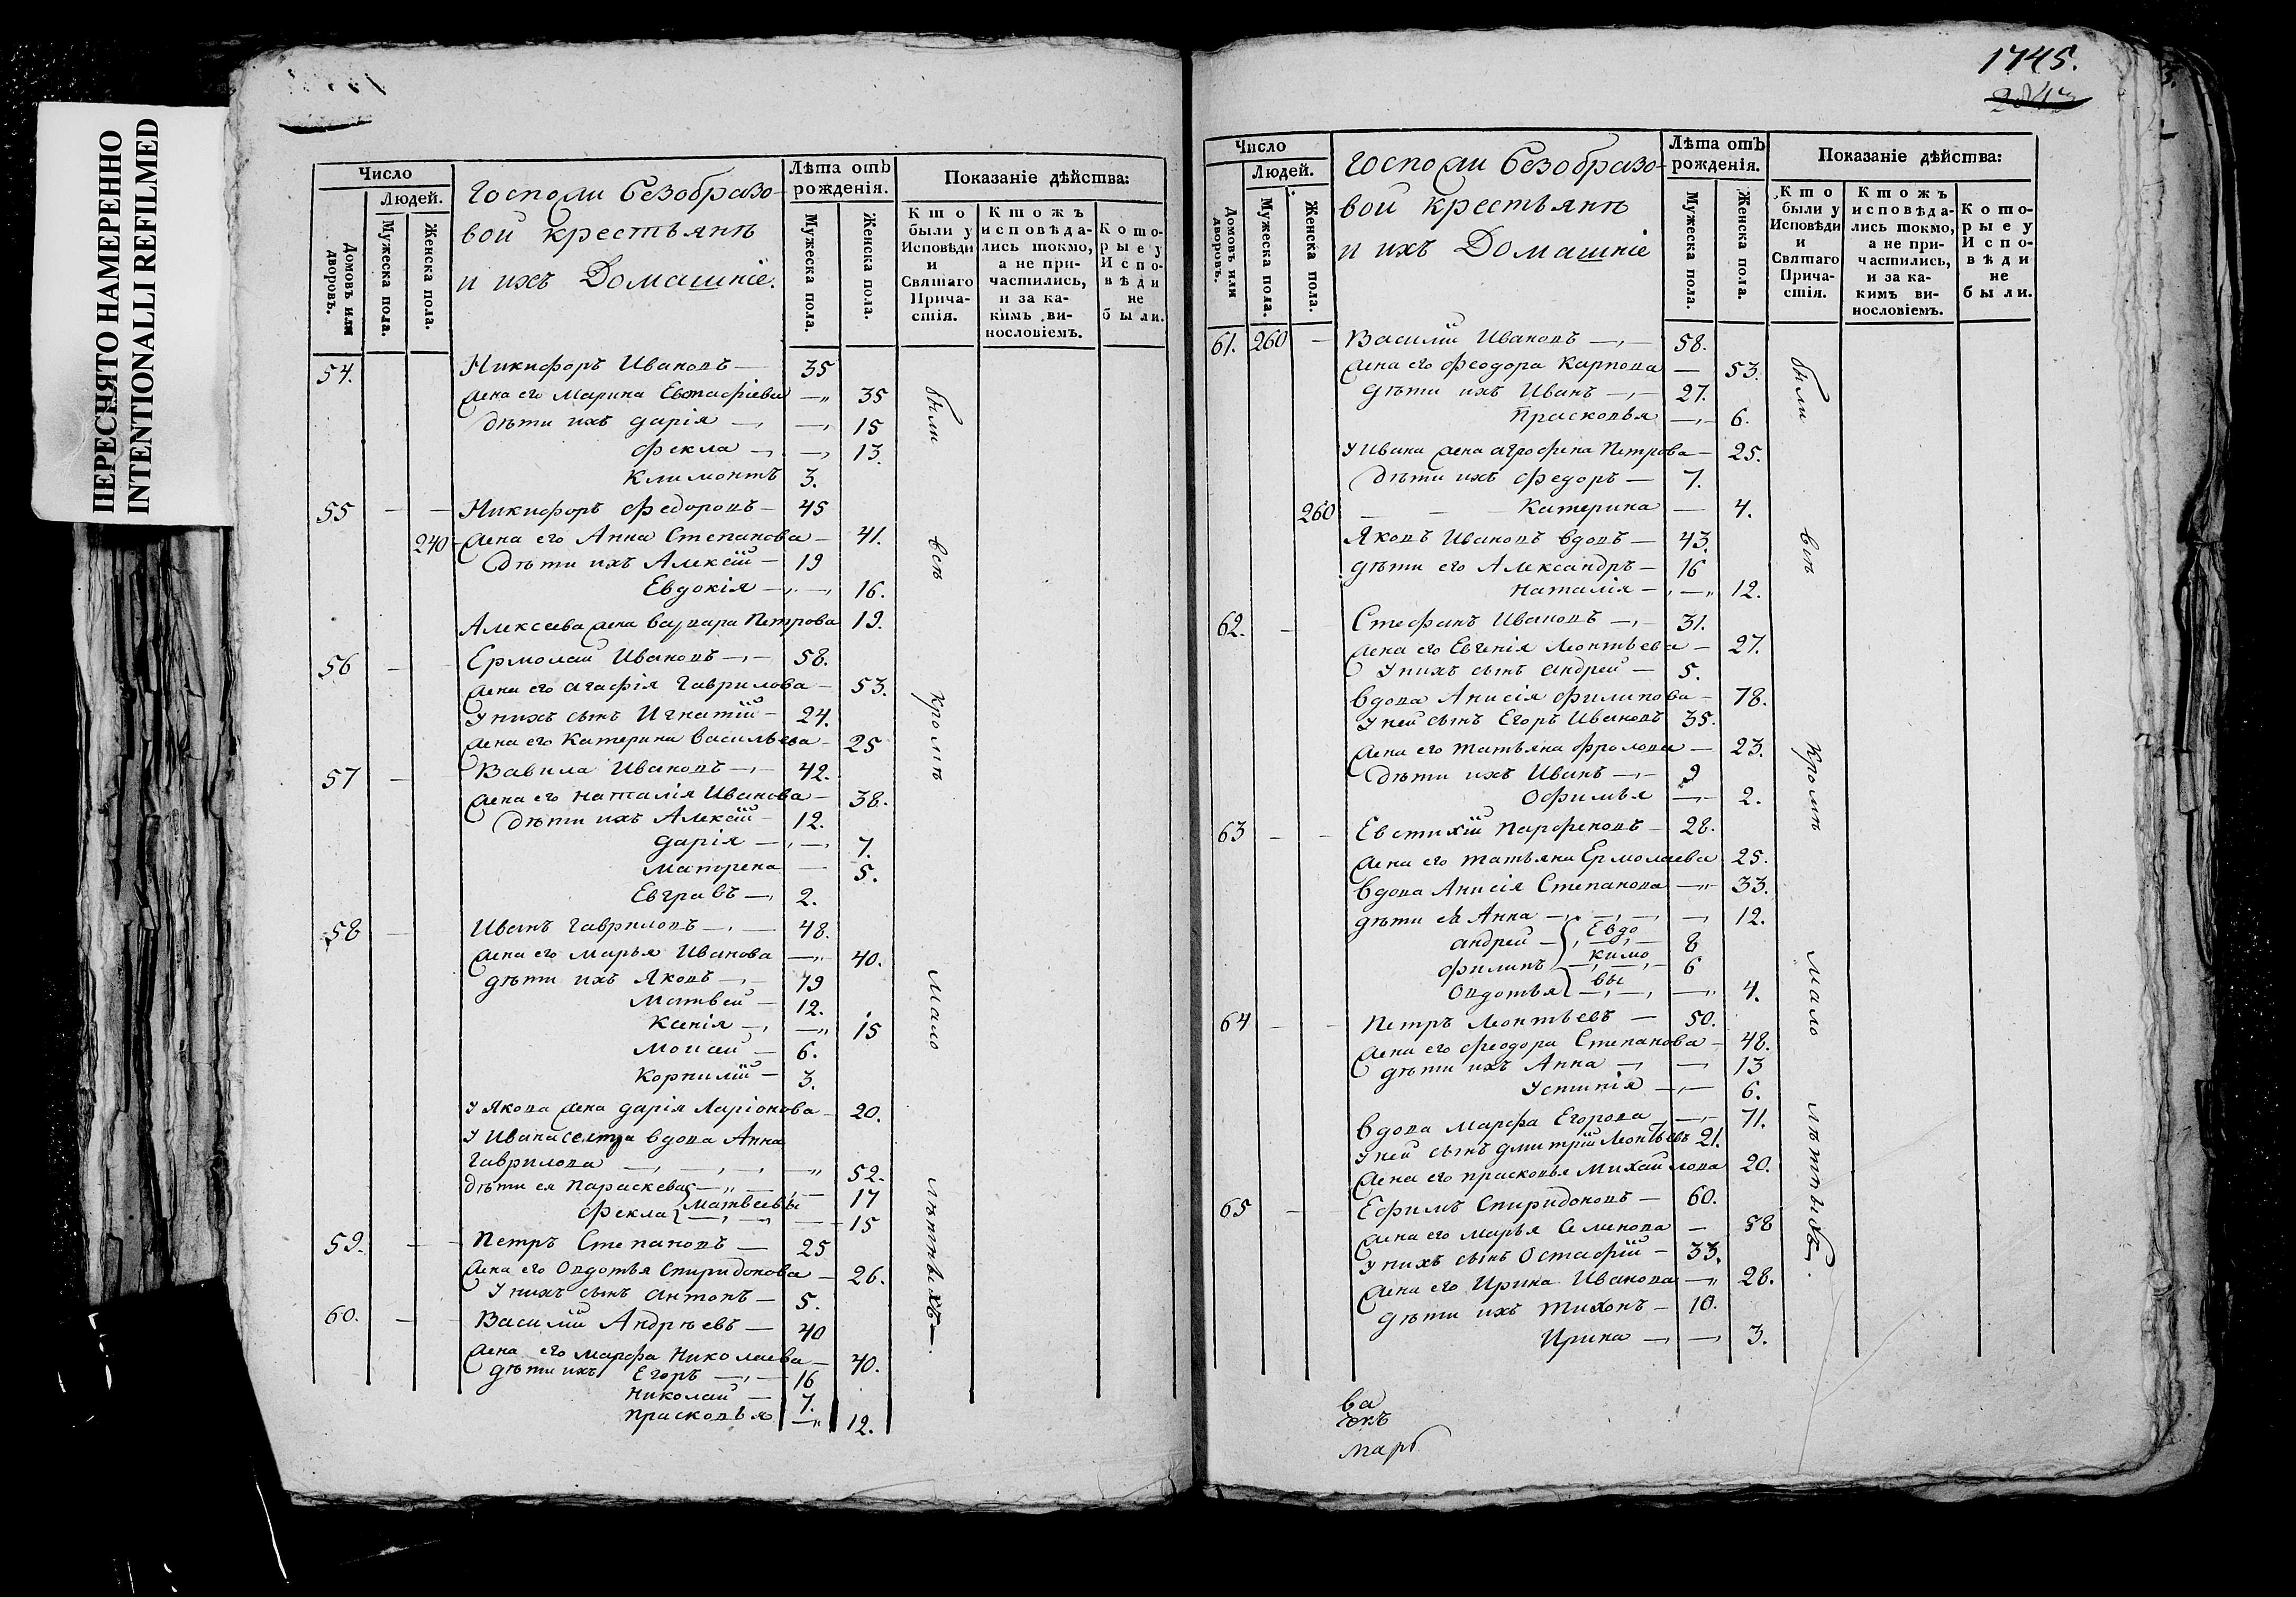 ПЕРЕСНЯТО НАМЕРЕННО
INTENTIONALLI REFILMED
Число
Людей.
Домовъ или дворовъ.
Мужеска пола.
Женска пола.
Госпожи Безобразо-
вой крестьянѣ
и ихъ Домашніе.
Лѣта отъ рожденія.
Мужеска пола.
Женска пола.
Показаніе дѣйства:
Кто были у Исповѣди и Святаго Прича-стія.
Ктожъ исповѣда-лись токмо, а не при-частились, и за ка-кимъ ви-нословіемъ.
Кото-рые у Испо-вѣди не были.
54. Никифоръ Ивановъ — 35
жена его Марина Евстафіева — 35
дѣти ихъ Дарія — 15
Фекла — 13.
Климонтъ 3.
55 — — Никифоръ Федоровъ — 45
240 — жена его Анна Степанова — 41.
дѣти ихъ Алексій — 19
Евдокія — 16.
Алексеева жена Варвара Петрова 19.
56 — Ермолай Ивановъ — 58.
жена его Агафія Гаврилова — 53.
у нихъ сынъ Игнатій — 24.
жена его Катерина Васильева — 25
57 — Вавила Ивановъ — 42.
жена его Наталія Иванова — 38.
дѣти ихъ Алексій — 12.
Дарія — 7.
Матрена — 5.
Евгравъ — 2.
58 — Иванъ Гавриловъ — 48.
жена его Марья Иванова — 40.
дѣти ихъ Яковъ — 19
Матвей — 12.
Ксенія — 15
Моисей — 6.
Корнилій — 3.
у Якова жена Дарія Ларіонова — 20.
у Ивана сестра вдова Анна
Гаврилова — 52.
дѣти ея Параскева — 17
Фекла } Матвеевы — 15
59. — — Петръ Степановъ — 25
жена его Овдотья Спиридонова — 26.
у нихъ сынъ Антонъ — 5.
60. — Василій Андрѣевъ — 40
жена его Марфа Николаева — 40.
дѣти ихъ Егоръ — 16
Николай — 7.
Прасковья — 12.
были всѣ кромѣ мало лѣтныхъ.
1745.
Число
Людей.
Домовъ или дворовъ.
Мужеска пола.
Женска пола.
Госпожи Безобразо-
вой крестьянѣ
и ихъ Домашніе
Лѣта отъ рожденія.
Мужеска пола.
Женска пола.
Показаніе дѣйства:
Кто были у Исповѣди и Святаго Прича-стія.
Ктожъ исповѣда-лись токмо, а не при-частились, и за ка-кимъ ви-нословіемъ.
Кото-рые у Испо-вѣди не были.
61. 260 — Василій Ивановъ — 58.
жена его Феодора Карпова — 53.
дѣти ихъ Иванъ — 27.
Прасковья — 6.
у Ивана жена Агрофена Петрова — 25.
дѣти ихъ Федоръ — 7.
260 — — Катерина — 4.
Яковъ Ивановъ вдовъ — 43.
дѣти его Александръ — 16
Наталія — 12.
62. — Стефанъ Ивановъ — 31.
жена его Евгенія Леонтьева — 27.
у нихъ сынъ Андрей — 5.
вдова Анисія Филипова — 78.
у ней сынъ Егоръ Ивановъ 35.
жена его Татьяна Фролова — 23.
дѣти ихъ Иванъ — 9
Офимья — 2.
63 — — Евстихій Парфеновъ — 28.
жена его Татьяна Ермолаева 25.
вдова Анисія Степанова — 33.
дѣти ея Анна — 12.
Андрей — } Евдо 8
Филипъ } кимо 6
Овдотья } вы — 4.
64 — — Петръ Леонтьевъ — 50.
жена его Феодора Степанова — 48.
дѣти ихъ Анна — 13
Устинія — 6.
вдова Марфа Егорова — 71.
у ней сынъ Дмитрій Леонтьевъ 21.
жена его Прасковья Михайлова 20.
65 — Ефимъ Спиридоновъ — 60.
жена его Марья Семенова — 58
у нихъ сынъ Остафій — 33.
жена его Ирина Иванова — 28.
дѣти ихъ Тихонъ — 10.
Ирина — 3.
были всѣ кромѣ мало лѣтныхъ.
ва